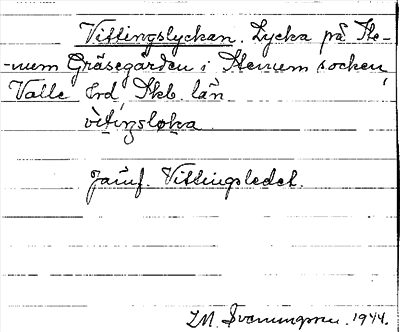 Vittingslyckan. Lycka på Ste-
-num Gräsegården i Stenum socken,
Valle hrd, Skb. län.
vìtiŋsløka
Jämf. Vittingsledet.
I.M. Svenungsson. 1944.